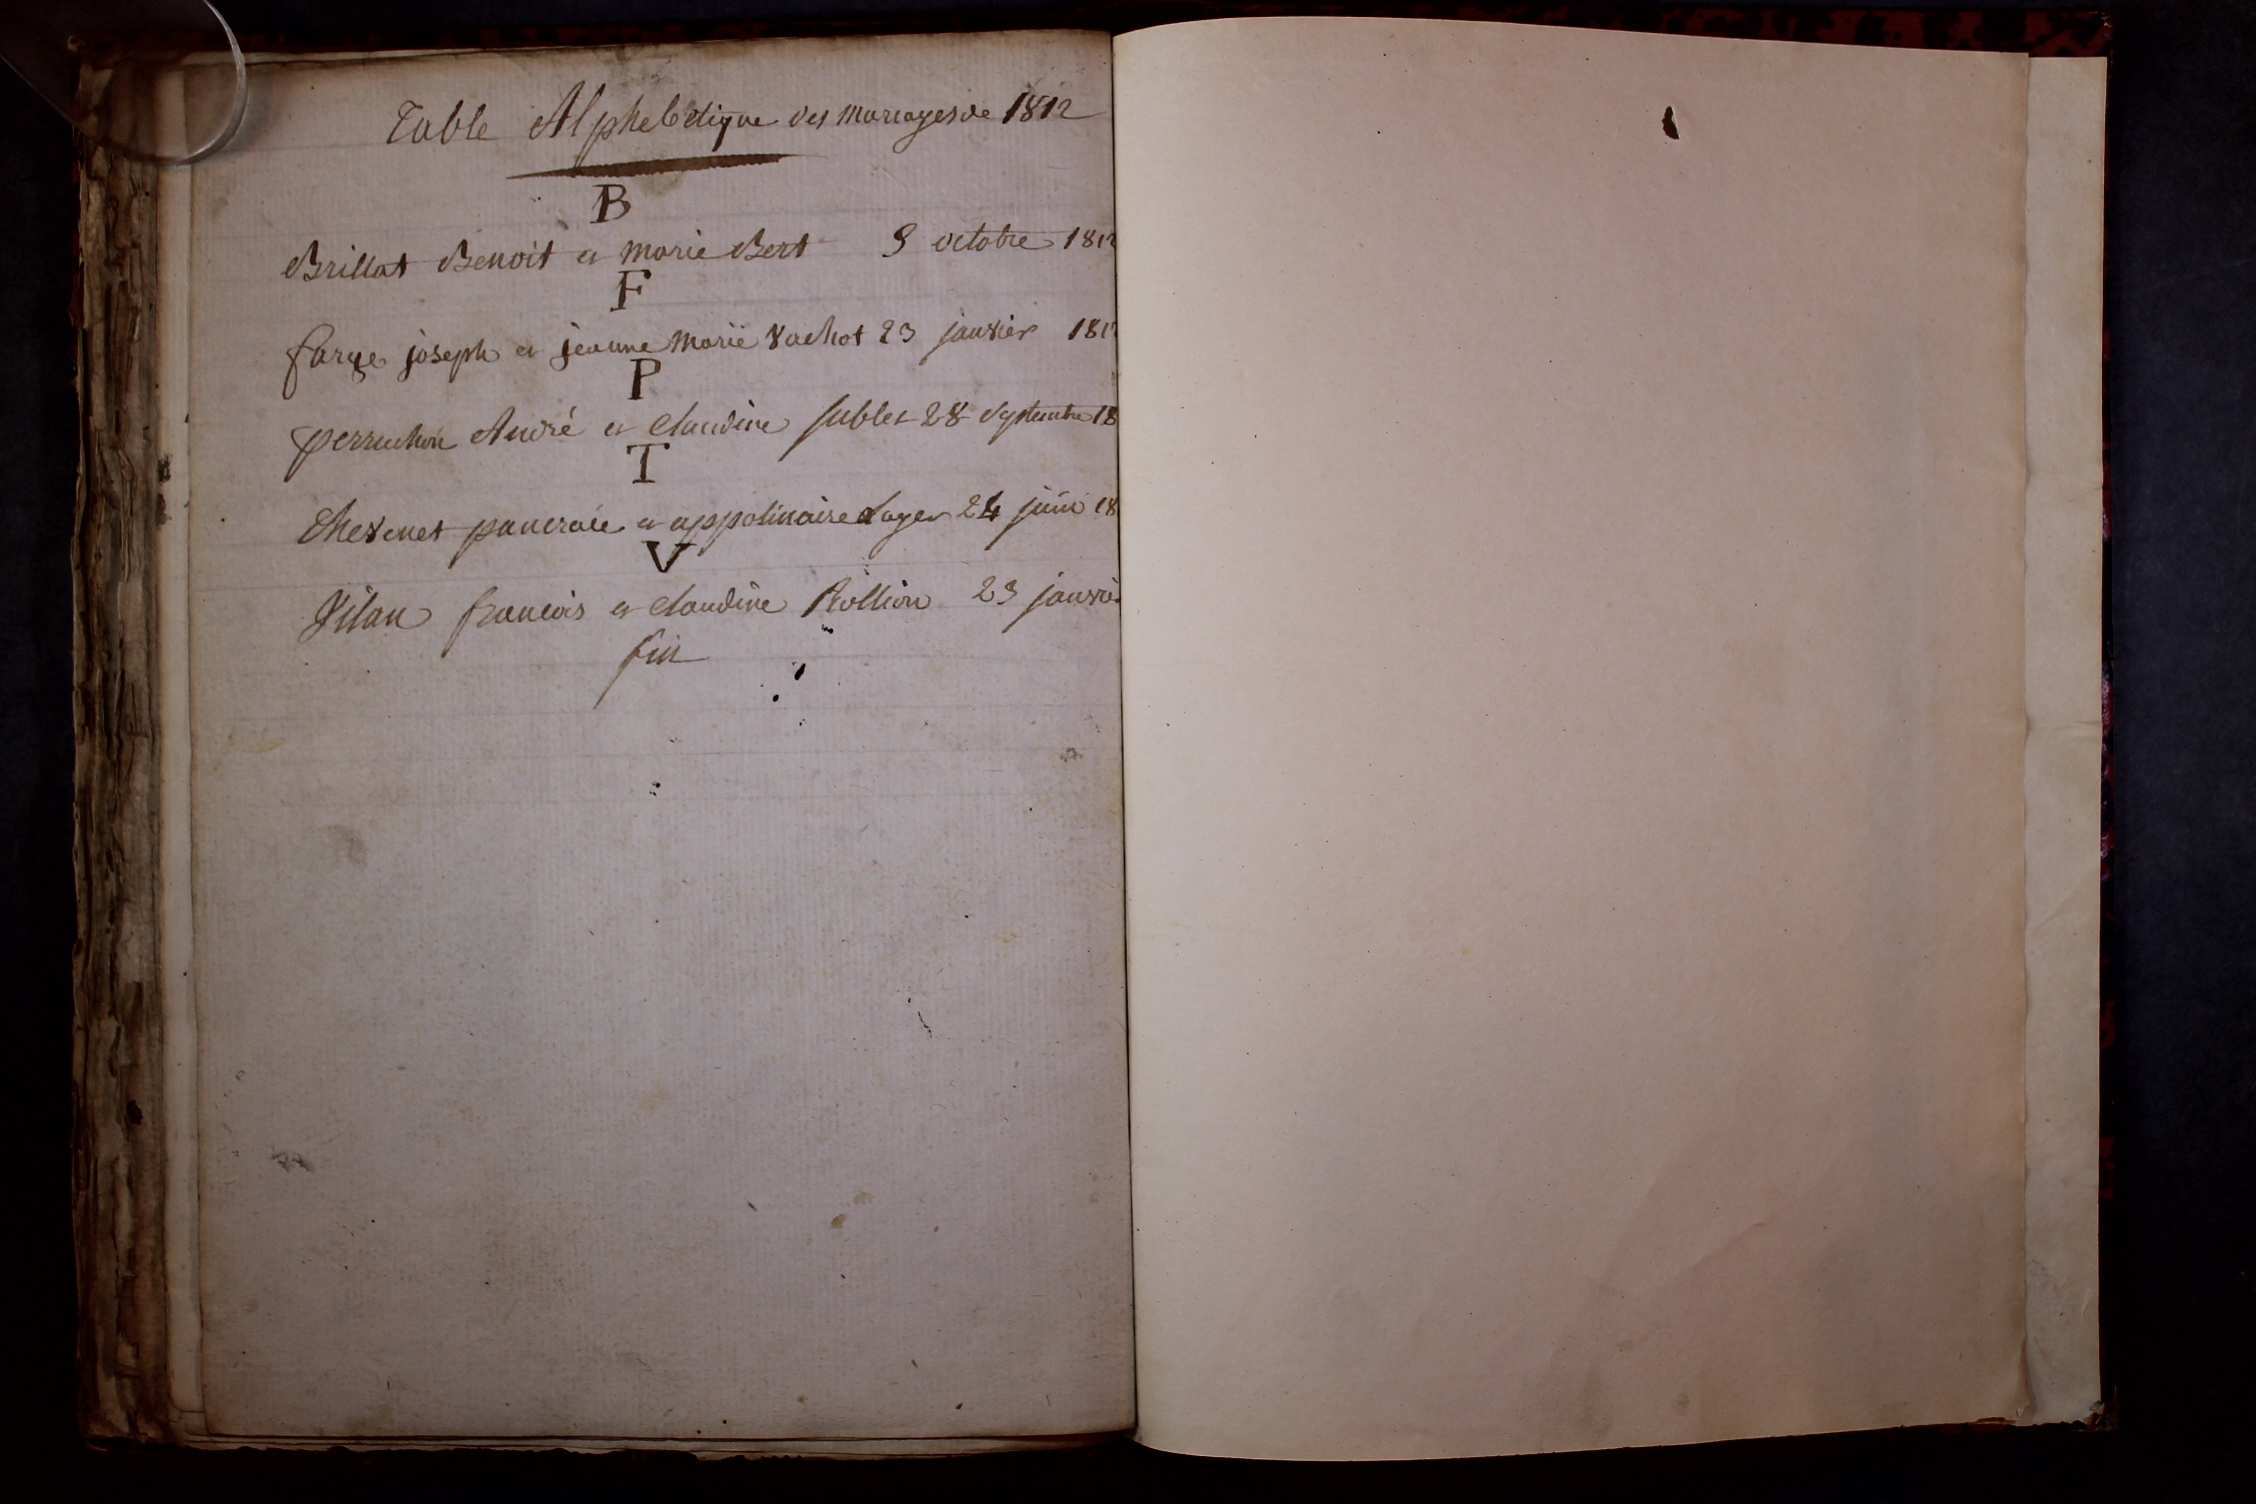 Table Alphebetique des Mariages de 1812
B
Brillat Benoit et Marie Bert 9 octobre 1812
F
farge joseph et jeanne Marie Vachot 23 janvier 181
P
perruchon André et Claudine Sublet 28 Septembre 18
T
thevenet pancrace et appolinaire Lager 24 juin 18
V
Vilan francois et Claudine Rollion 23 janvier
fin